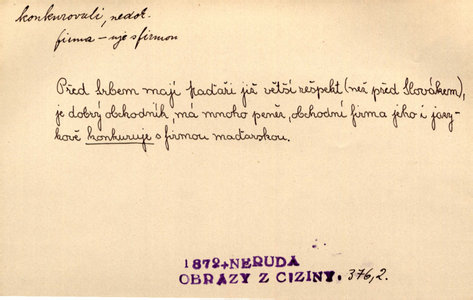 konkurovati, nedok.
firma – uje s firmou
Před Srbem mají Maďaři již větší rešpekt (než před Slovákem),
je dobrý obchodník, má mnoho peněz, obchodní firma jeho i jazy-
kově konkuruje s firmou maďarskou.
1872 NERUDA
OBRAZY Z CIZINY. 376,2.